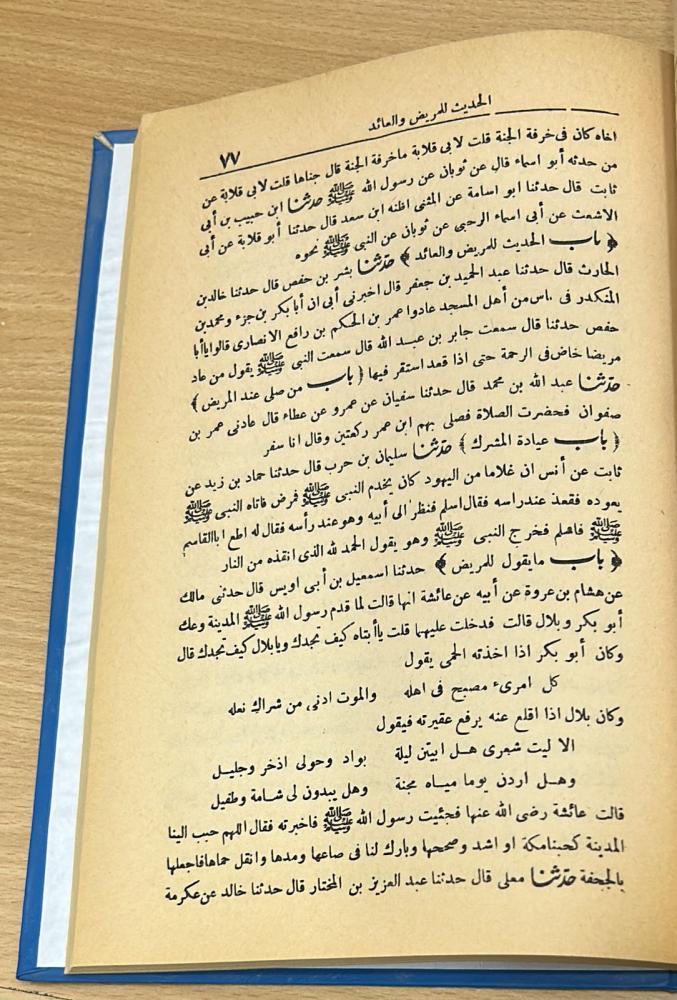 الحديث للمريض والعائد
٧٧
اخاه كان فى خرفة الجنة قلت لابى قلابة ماخرفة الجنة قال جناها قلت لابى قلابة عن
من حدثه أبو اسماء قال عن ثوبان عن رسول الله ﷺ حدثنا ابن حبيب بن أبى
ثابت قال حدثنا ابو اسامة عن المثنى اظنه ابن سعد قال حدثنا أبو قلابة عن أبى
الاشعث عن أبى اسماء الرحبى عن ثوبان عن النبى ﷺ نحوه
﴿ باب الحديث للمريض والعائد ﴾ حدثنا بشر بن حفص قال حدثنا خالدبن
الحارث قال حدثنا عبد الحميد بن جعفر قال اخبرنى أبى ان أبا بكر بن جزء ومحمدبن
المنكدر فى ناس من أهل المسجد عادوا عمر بن الحكم بن رافع الانصارى قالوا ياأبا
حفص حدثنا قال سمعت جابر بن عبد الله قال سمعت النبى ﷺ يقول من عاد
مريضا خاض فى الرحمة حتى اذا قعد استقر فيها ﴿ باب من صلى عند المريض ﴾
حدثنا عبد الله بن محمد قال حدثنا سفيان عن عمرو عن عطاء قال عادنى عمر بن
صفوان فحضرت الصلاة فصلى بهم ابن عمر ركعتين وقال انا سفر
﴿ باب عيادة المشرك ﴾ حدثنا سليمان بن حرب قال حدثنا حماد بن زيد عن
ثابت عن أنس ان غلاما من اليهود كان يخدم النبى ﷺ فمرض فاتاه النبى ﷺ
يعوده فقعد عندراسه فقال اسلم فنظر الى أبيه وهو عند رأسه فقال له اطع اباالقاسم
ﷺ فاسلم فخرج النبى ﷺ وهو يقول الحمد لله الذى انقذه من النار
﴿ باب مايقول للمريض ﴾ حدثنا اسمعيل بن أبى اويس قال حدثنى مالك
عن هشام بن عروة عن أبيه عن عائشة انها قالت لما قدم رسول الله ﷺ المدينة وعك
أبو بكر وبلال قالت فدخلت عليهما قلت ياأبتاه كيف تجدك ويابلال كيف تجدك قال
وكان أبو بكر اذا اخذته الحمى يقول
كل امرىء مصبح فى اهله والموت ادنى من شراك نعله
وكان بلال اذا اقلع عنه يرفع عقيرته فيقول
الا ليت شعرى هل ابيتن ليلة بواد وحولى اذخر وجليل
وهل اردن يوما مياه مجنة وهل يبدون لى شامة وطفيل
قالت عائشة رضى الله عنها فجئيت رسول الله ﷺ فاخبرته فقال اللهم حبب الينا
المدينة كحبنامكة او اشد وصححها وبارك لنا فى صاعها ومدها وانقل حماهافاجعلها
بالجحفة حدثنا معلى قال حدثنا عبد العزيز بن المختار قال حدثنا خالد عن عكرمة